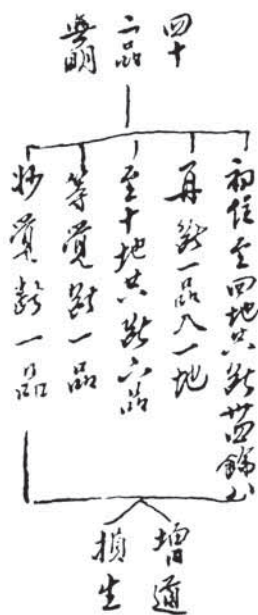 四十
二品
無明
初住至四地共斷卅四餘八
再斷一品入一地
至十地共斷六品
等覺斷一品
妙覺斷一品
增道
損生